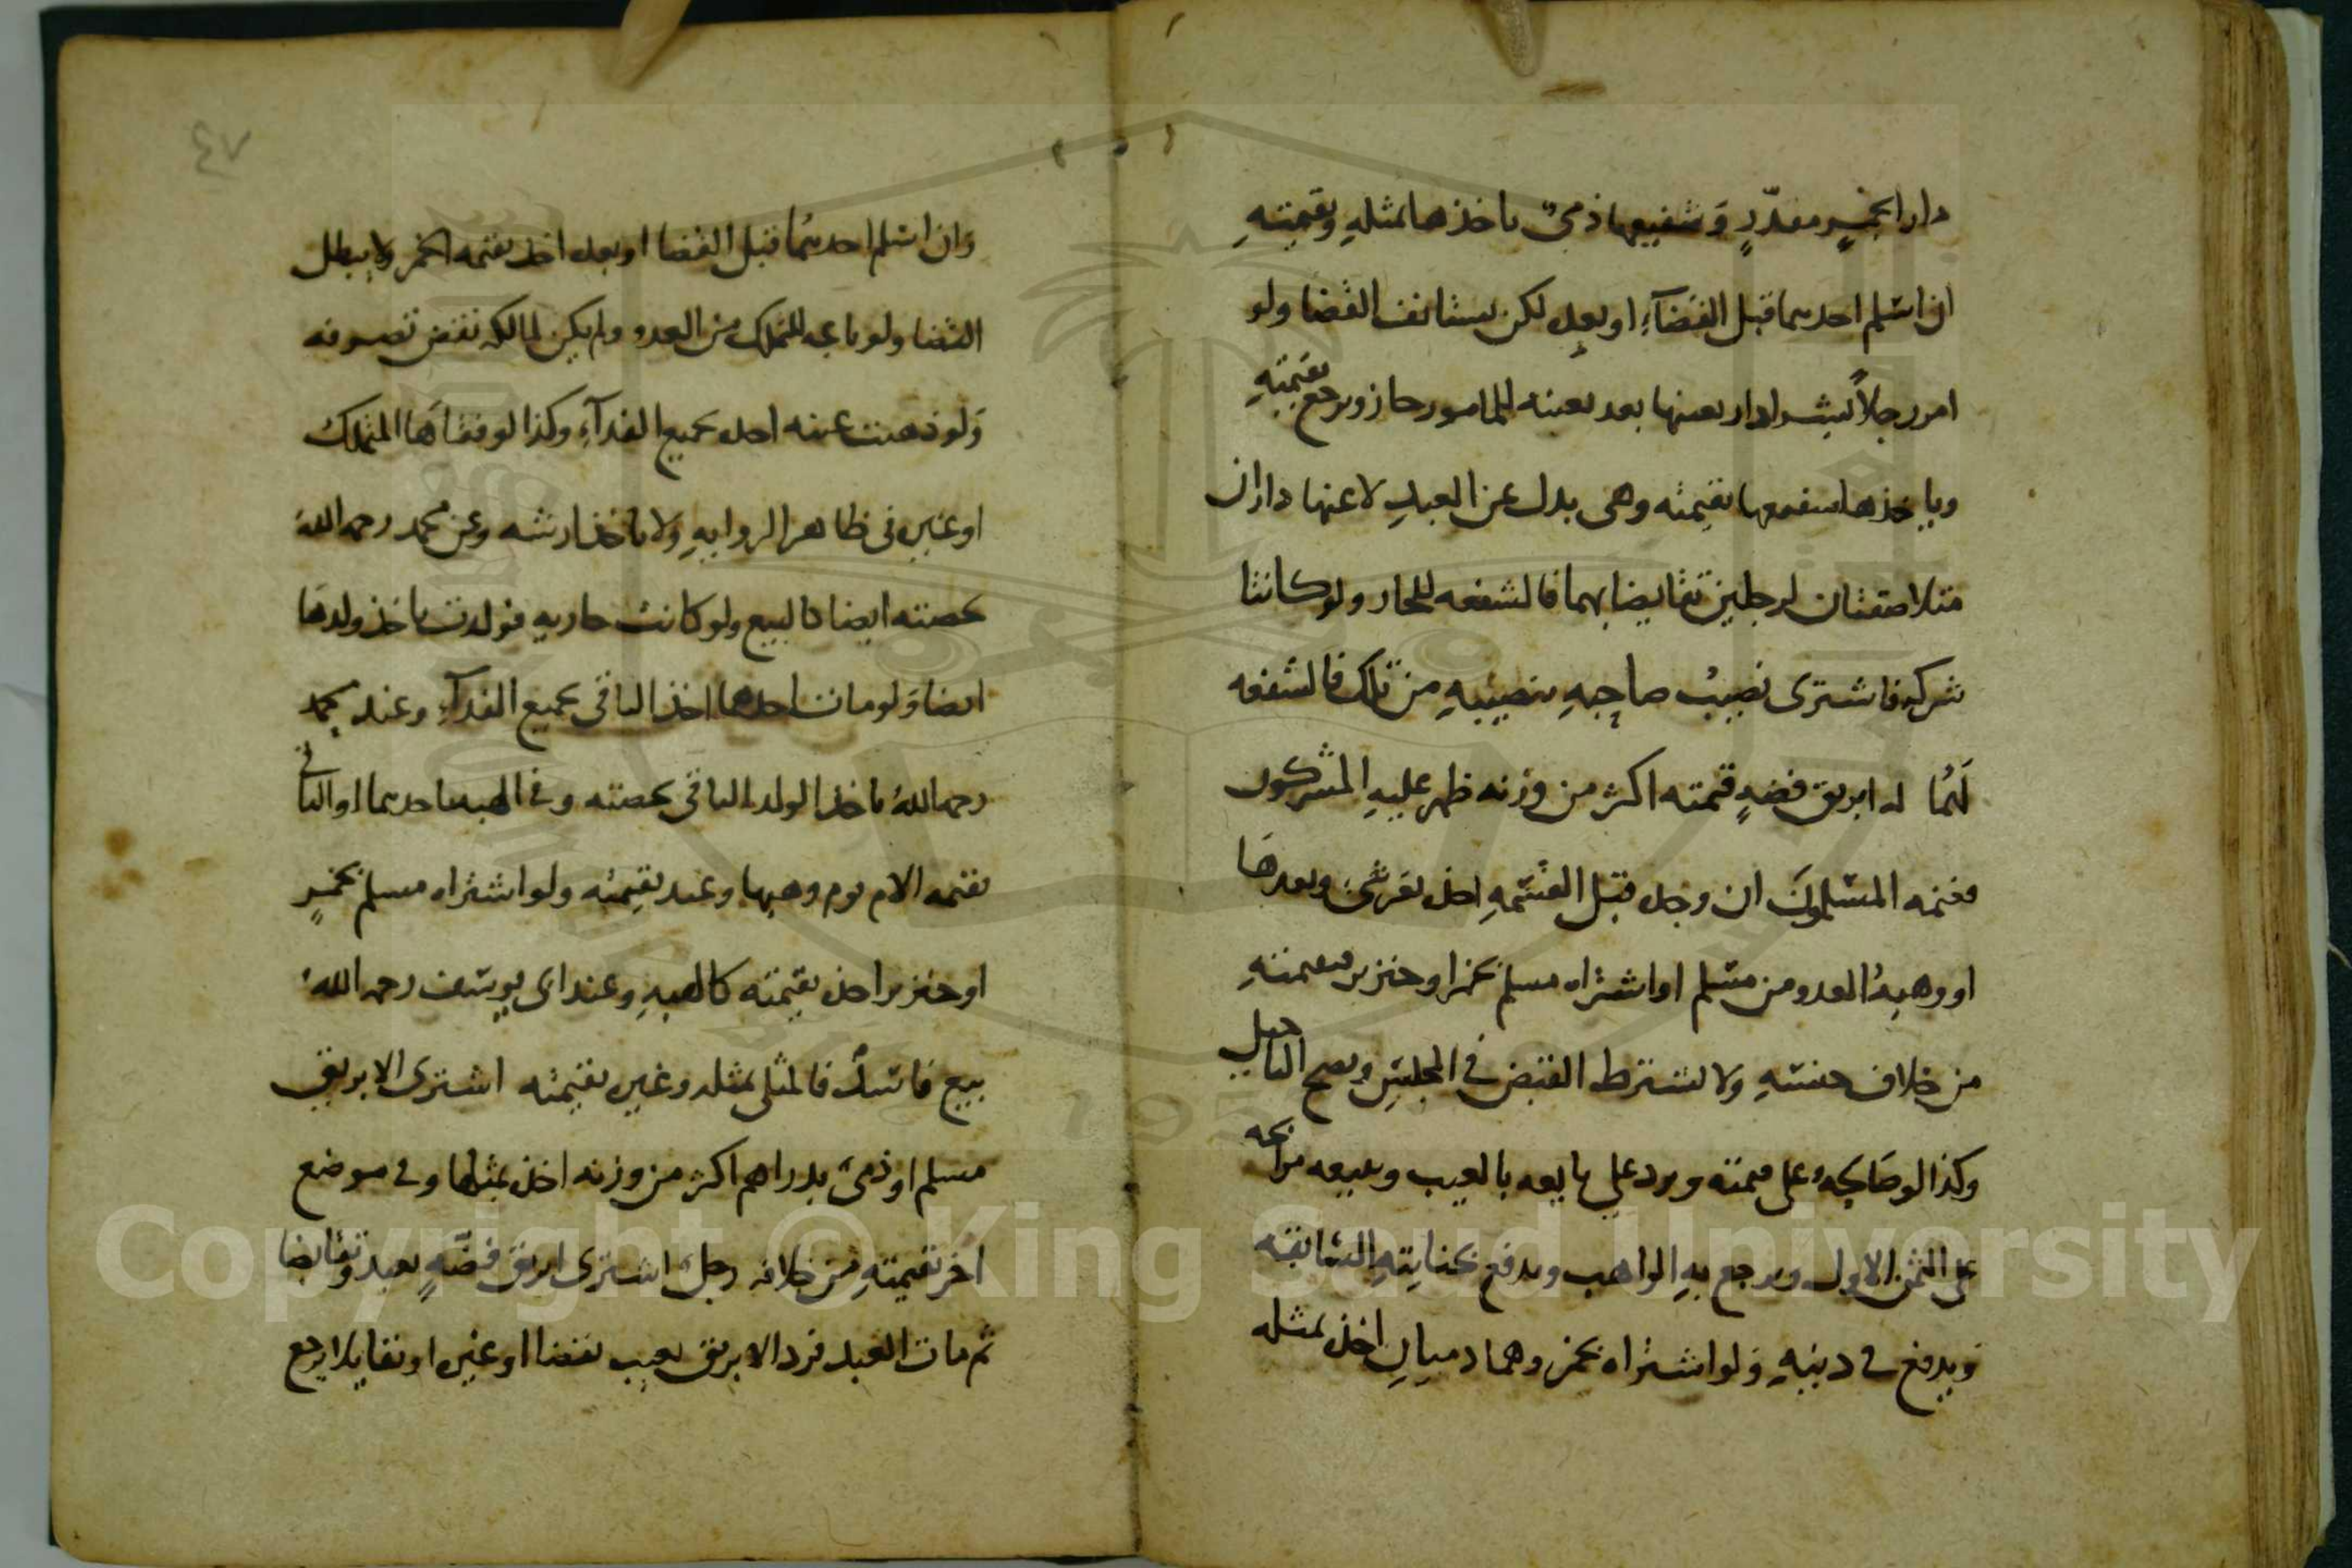 دارا بخمرٍ مقدّرٍ وَشفيعها ذمىٌ ياخذها بمثلهِ وبقيمتهِ
ان اسلم احدهما قبل القضآءِ او بعده لكن يستانف القضا ولو
امر رجلاً بشرا دار بعينها بعبد بعينه للمامور جاز ويرجع بقيمتهِ
وياخذها شفيعها بقيمته وهى بدل عن العبدِ لا عنها داران
متلاصقتان لرجلين تقايضا بهما فالشفعه للجار ولو كانتا
شركه فاشترى نصيبُ صاحبهِ بنصيبهِ من تلك فالشفعه
لهُما له ابريق فضهٍ قيمته اكثر من وزنه ظهر عليهِ المشركون
فغنمه المسلمونَ ان وجده قبل القسمهِ اخذه بغير شىء وبعدهَا
او وهبهُ العدو من مسلم او اشتراه مسلم بخمر او خنزير فبقيمتهِ
من خلاف جنسهِ وَلا يشترط القبض فى المجلسِ ويصح التاجيل
وكذا لو صَالحهُ على قيمته ويرد على بايعه بالعيب ويبيعه مرابحه
على الثمن الاول ويرجع بهِ الواهب ويدفع بجنايتهِ السابقه
وَيدفع فى دينهِ وَلو اشتراه بخمر وهما ذميانِ اخذه بمثله
٤٧
وَان اسلم احدهمُا قبل القضا او بعده اخذه بقيمه الخمر ولا يبطل
القضا ولو باعه المتملك من العدو ولم يكن لمالكه نقض تصرفه
وَلو ذهبت عينه اخذه بجميع الفدآءِ وكذا لو فقاهَا المتملكُ
او غيره فى ظاهر الروايهِ وَلا ياخذ ارشه وعن محمد رحمه اللهُ
بحصته ايضا كالبيع ولو كانت جاريه فولدت ياخذ ولدهَا
ايضا وَلو مات احدهما اخذ الباقى بجميع الفدآءِ وعند محمد
رحمه اللهُ ياخذ الولد الباقى بحصته وفى الهبه باحدهما او الباقى
بقيمه الام يوم وهبها وعنه بقيمته ولو اشتراه مسلم بخمرٍ
او خنزير اخذه بقيمته كالهبهِ وعند ابى يوسف رحمه اللهُ
بيع فاسدٌ فالمثلى بمثله وغيره بقيمته اشترى الابريق
مسلم او ذمى بدراهم اكثر من وزنه اخذه بمثلها وفى موضع
اخر بقيمتهِ من خلافه رجلٌ اشترى ابريق فضّهٍ بعبد وتقابضا
ثم مات العبد فرد الابريق بعيب بقضا او غيره او تقايلا يرجع
Copyright © King Saud University